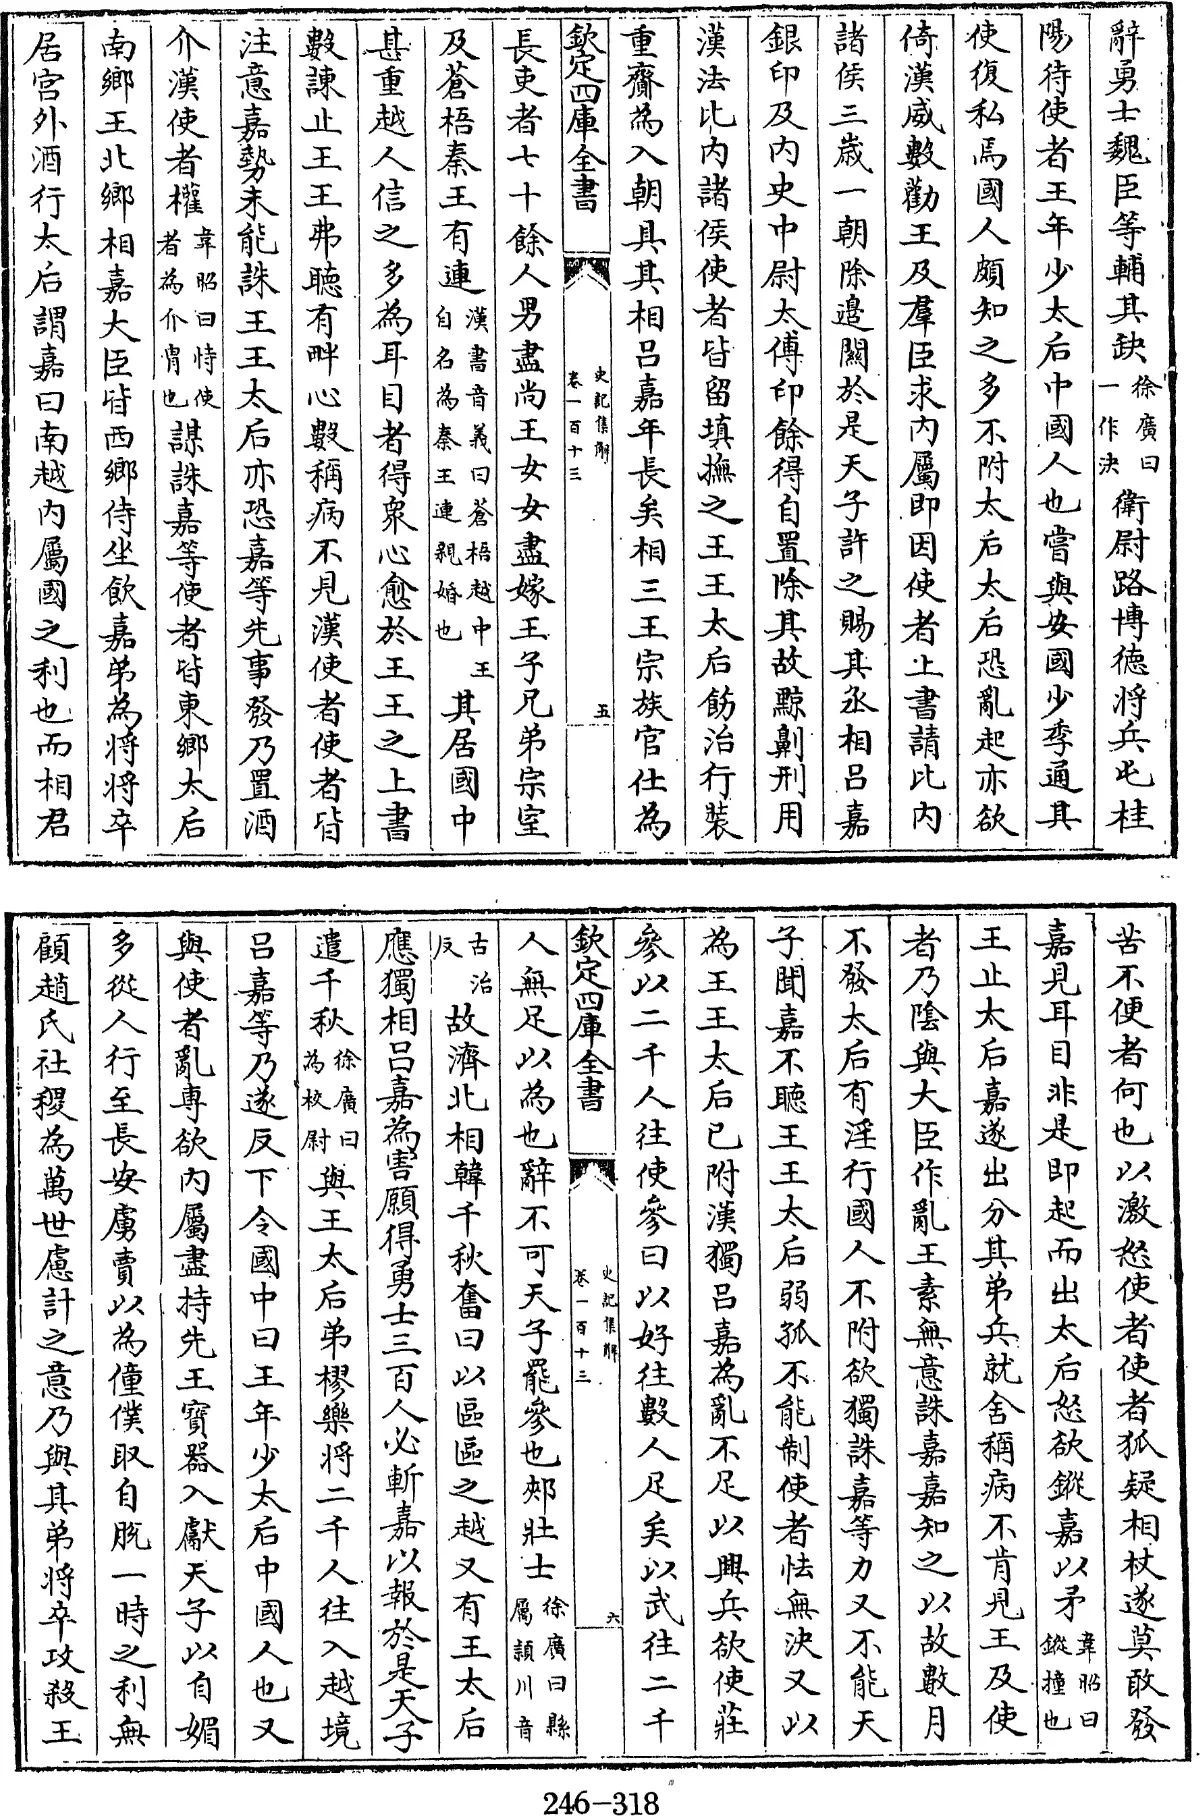 辭勇士魏臣等輔其缺徐廣曰一作決衛尉路博德將兵屯桂
陽待使者王年少太后中國人也嘗與安國少季通其
使復私焉國人頗知之多不附太后太后恐亂起亦欲
倚漢威數勸王及羣臣求內屬即因使者上書請比內
諸侯三歳一朝除邉關於是天子許之賜其丞相吕嘉
銀印及內史中尉太傅印餘得自置除其故黥劓刑用
漢法比內諸侯使者皆留填撫之王王太后飭治行裝
重齎為入朝具其相吕嘉年長矣相三王宗族官仕為
欽定四庫全書
史記集解
卷一百十三
五
長吏者七十餘人男盡尚王女女盡嫁王子兄弟宗室
及蒼梧秦王有連漢書音義曰蒼梧越中王自名為秦王連親婚也其居國中
甚重越人信之多為耳目者得衆心愈於王王之上書
數諫止王王弗聽有畔心數稱病不見漢使者使者皆
注意嘉勢未能誅王王太后亦恐嘉等先事發乃置酒
介漢使者權韋昭曰恃使者為介胄也謀誅嘉等使者皆東鄉太后
南鄉王北鄉相嘉大臣皆西鄉侍坐飲嘉弟為將將卒
居宮外酒行太后謂嘉曰南越內屬國之利也而相君
苦不便者何也以激怒使者使者狐疑相杖遂莫敢發
嘉見耳目非是即起而出太后怒欲鏦嘉以矛韋昭曰鏦撞也
王止太后嘉遂出分其弟兵就舍稱病不肯見王及使
者乃陰與大臣作亂王素無意誅嘉嘉知之以故數月
不發太后有淫行國人不附欲獨誅嘉等力又不能天
子聞嘉不聽王王太后弱孤不能制使者怯無決又以
為王王太后已附漢獨吕嘉為亂不足以興兵欲使莊
參以二千人往使參曰以好往數人足矣以武往二千
欽定四庫全書
史記集解
卷一百十三
六
人無足以為也辭不可天子罷參也郟壯士徐廣曰縣屬潁川音
古治反故濟北相韓千秋奮曰以區區之越又有王太后
應獨相吕嘉為害願得勇士三百人必斬嘉以報於是天子
遣千秋徐廣曰為校尉與王太后弟樛樂將二千人往入越境
吕嘉等乃遂反下令國中曰王年少太后中國人也又
與使者亂専欲內屬盡持先王寶器入獻天子以自媚
多從人行至長安虜賣以為僮僕取自脱一時之利無
顧趙氏社稷為萬世慮計之意乃與其弟將卒攻殺王
246-318